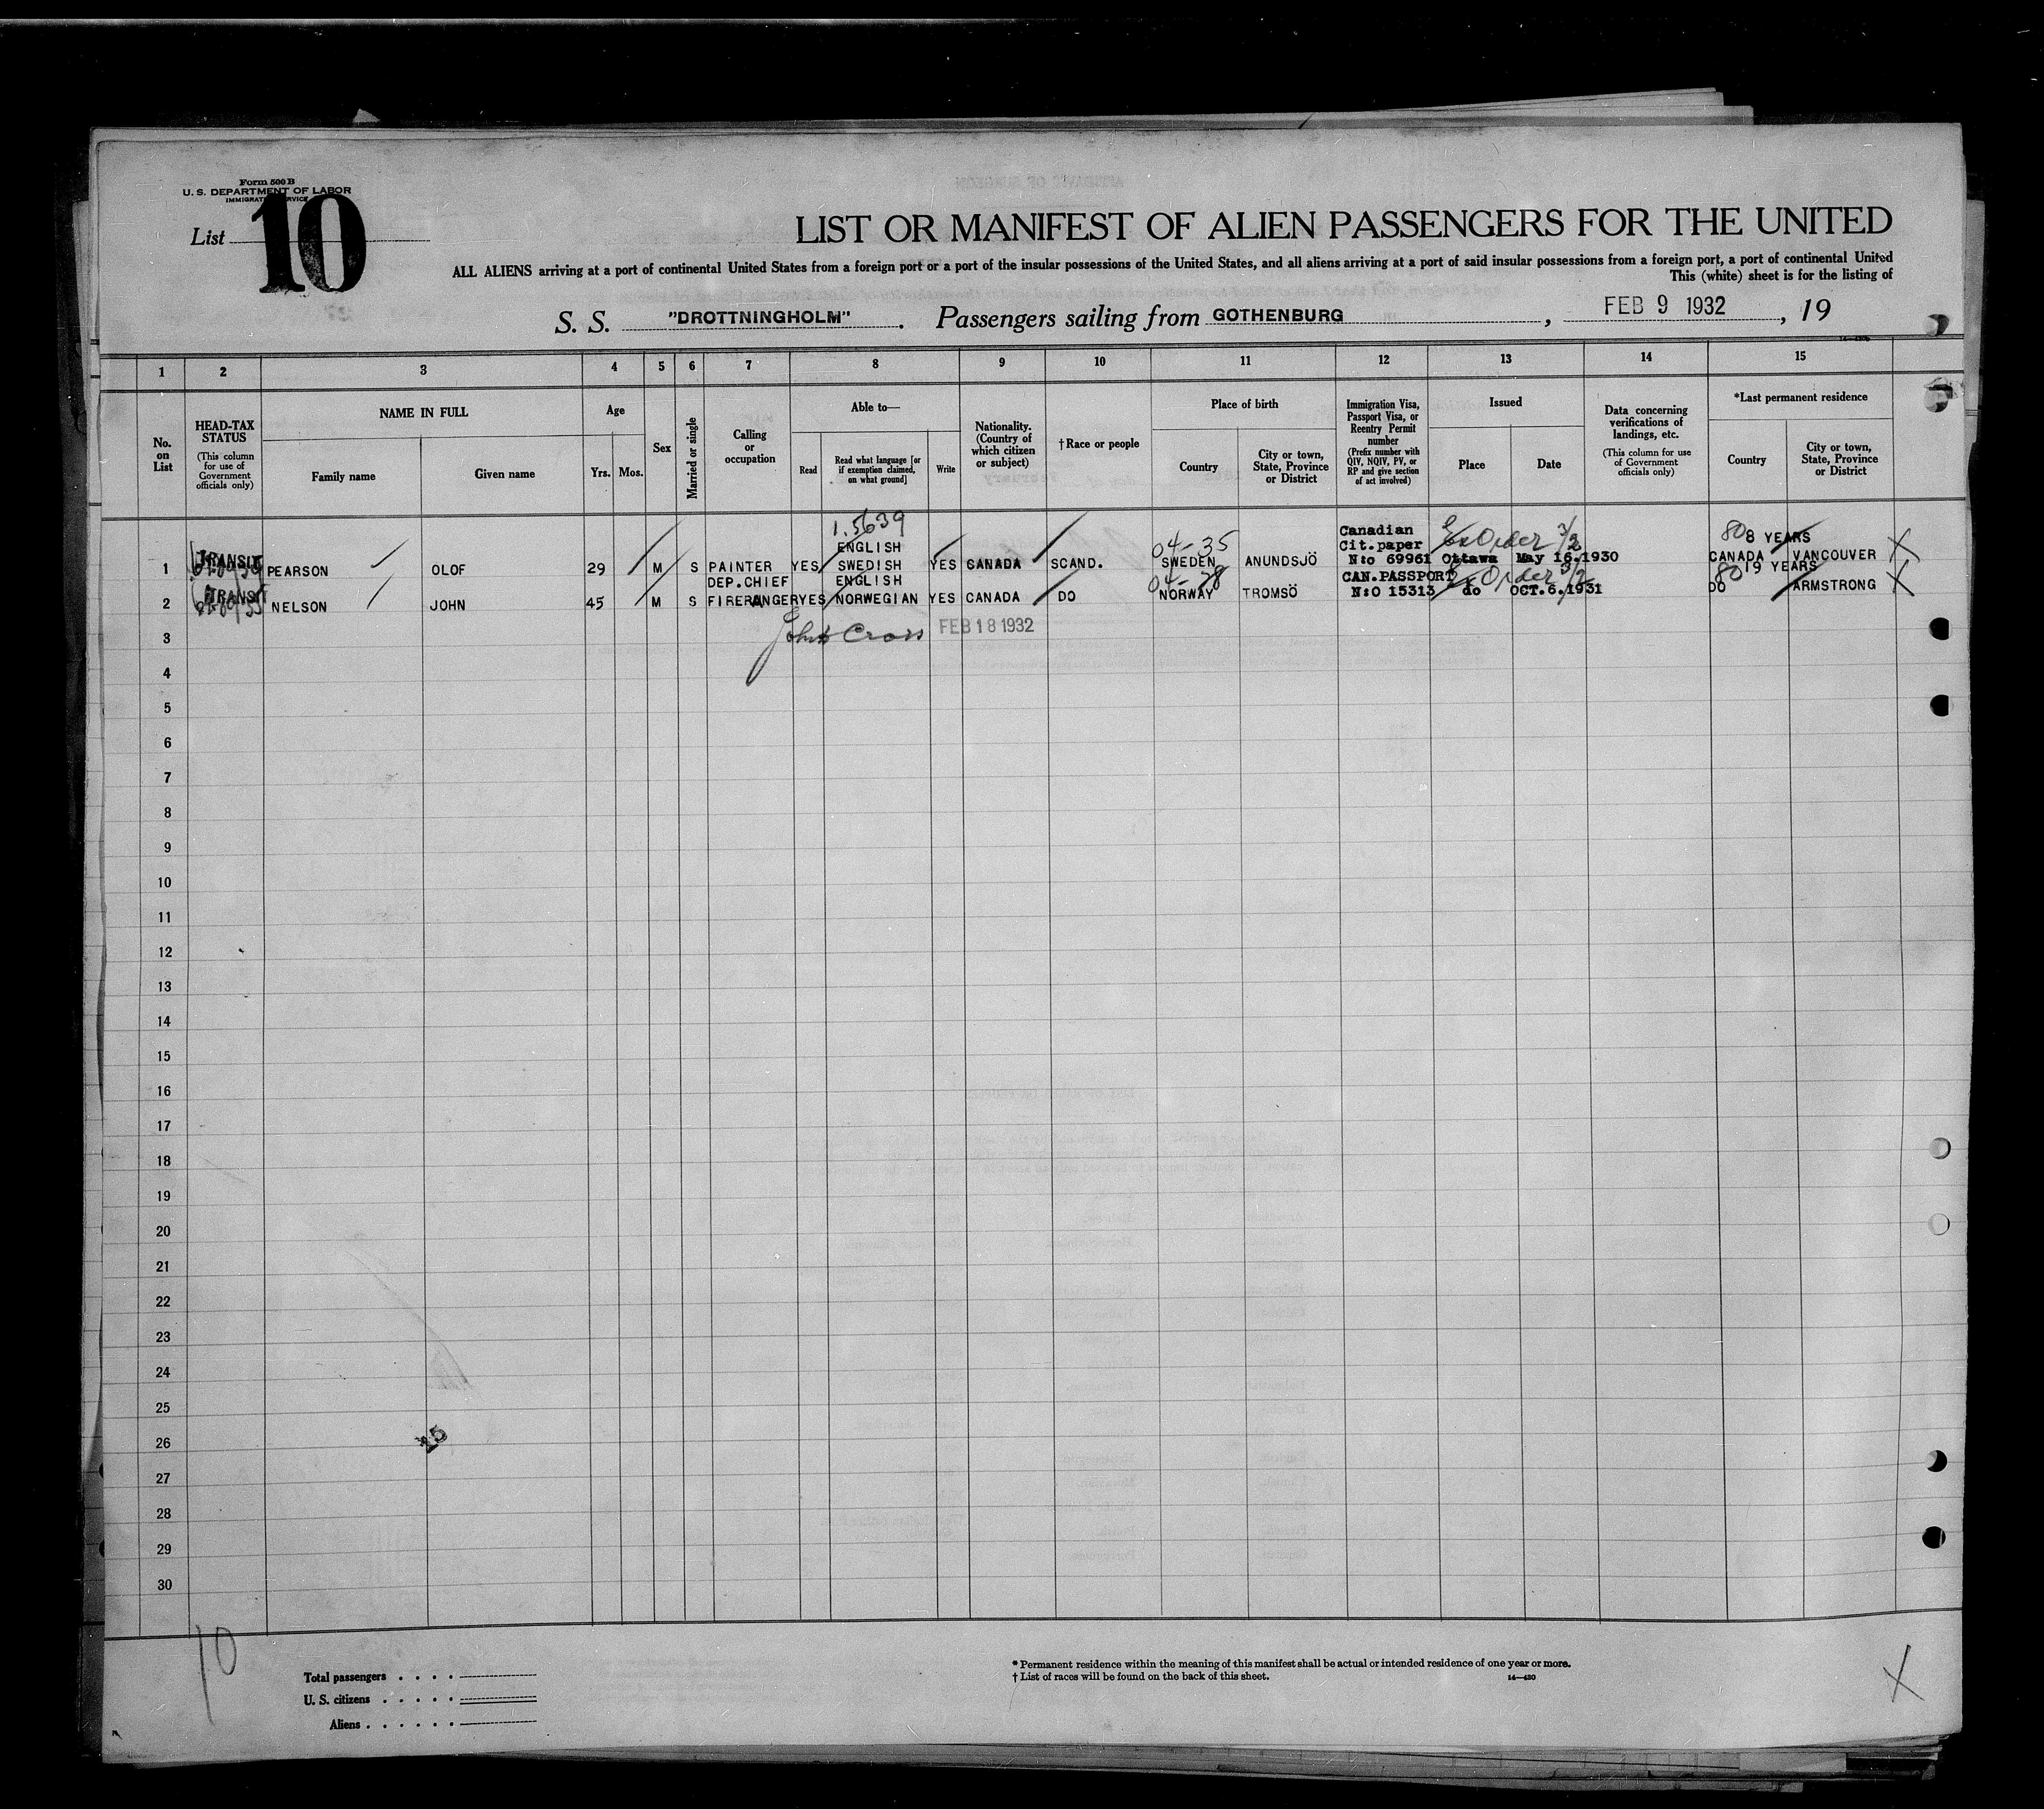 Form 500 B
U. S. DEPARTMENT OF LABOR
List 10
LIST OR MANIFEST OF ALIEN PASSENGERS FOR THE UNITED
ALL ALIENS arriving at a port of continental United States from a foreign port or a port of the insular possessions of the United States, and all aliens arriving at a port of said insular possessions from a foreign port, a port of continental United
This (white) sheet is for the listing of
S. S. "DROTTNINGHOLM". Passengers sailing from GOTHENBURG, FEB 9 1932, 19
1 2 3 4 5 6 7 8 9 10 11 12 13 14 15
No. on List
HEAD-TAX STATUS (This column for use of Government officials only)
NAME IN FULL
Family name
Given name
Age
Yrs. Mos.
Sex
Married or single
Calling or occupation
Able to—
Read
Read what language [or if exemption claimed, on what ground]
Write
Nationality. (Country of which citizen or subject)
†Race or people
Place of birth
Country
City or town, State, Province or District
Immigration Visa, Passport Visa, or Reentry Permit number (Prefix number with QIV, NQIV, PV, or RP and give section of act involved)
Issued
Place
Date
Data concerning verifications of landings, etc. (This column for use of Government officials only)
*Last permanent residence
Country
City or town, State, Province or District
1.5639
ENGLISH 04-35 Canadian Cit.paper Ex Order 3/2 80 8 YEARS
1 TRANSIT PEARSON OLOF 29 M S PAINTER YES SWEDISH YES CANADA SCAND. SWEDEN ANUNDSJÖ N:o 69961 Ottawa May 16.1930 CANADA VANCOUVER X
DEP.CHIEF ENGLISH CAN.PASSPORT Ex Order 3/2 80 19 YEARS
2 TRANSIT NELSON JOHN 45 M S FIRERANGER YES NORWEGIAN YES CANADA DO NORWAY TROMSÖ N:O 15313 do OCT.6.1931 DO ARMSTRONG X
3 John Cross FEB 18 1932
4
5
6
7
8
9
10
11
12
13
14
15
16
17
18
19
20
21
22
23
24
25
26
27
28
29
30
10
Total passengers
U. S. citizens
Aliens
* Permanent residence within the meaning of this manifest shall be actual or intended residence of one year or more.
† List of races will be found on the back of this sheet.
14—430
X